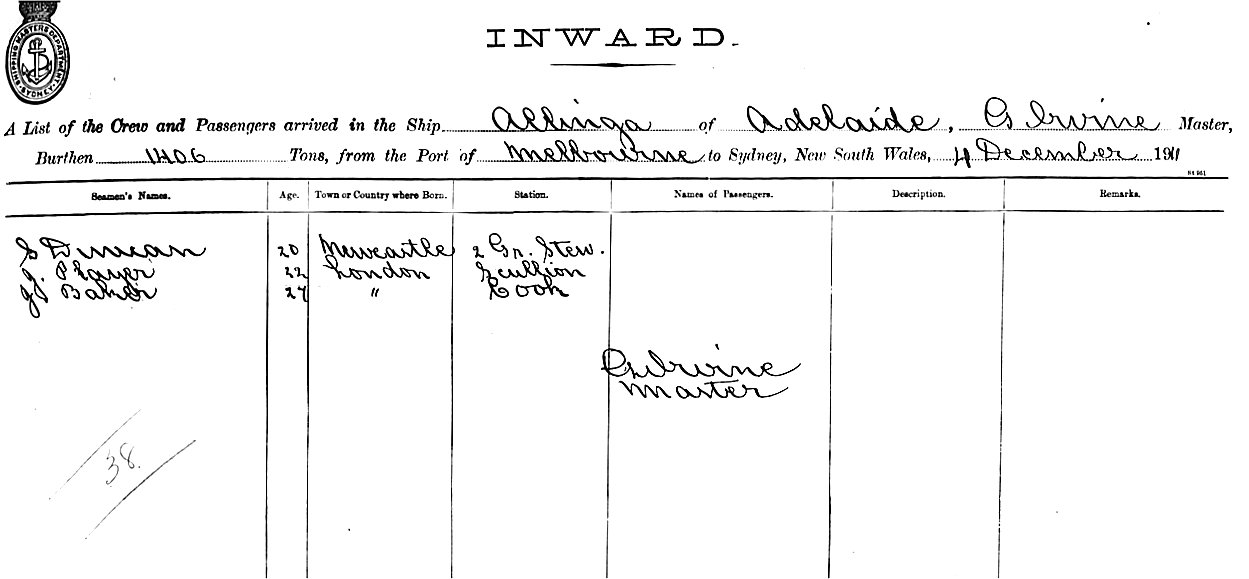 SHIPPING MASTERS DEPARTMENT. SYDNEY.
INWARD.
A List of the Crew and Passengers arrived in the Ship Allinga of Adelaide, G Irvine Master,
Burthen 1406 Tons, from the Port of Melbourne to Sydney, New South Wales, 4 December 1911
Seamen's Names. Age. Town or Country where Born. Station. Names of Passengers. Description. Remarks.
S Duncan 20 Newcastle 2 Gr. Stew.
J. Player 22 London Scullion
J Baker 27 " Cook
G Irvine
Master
38.